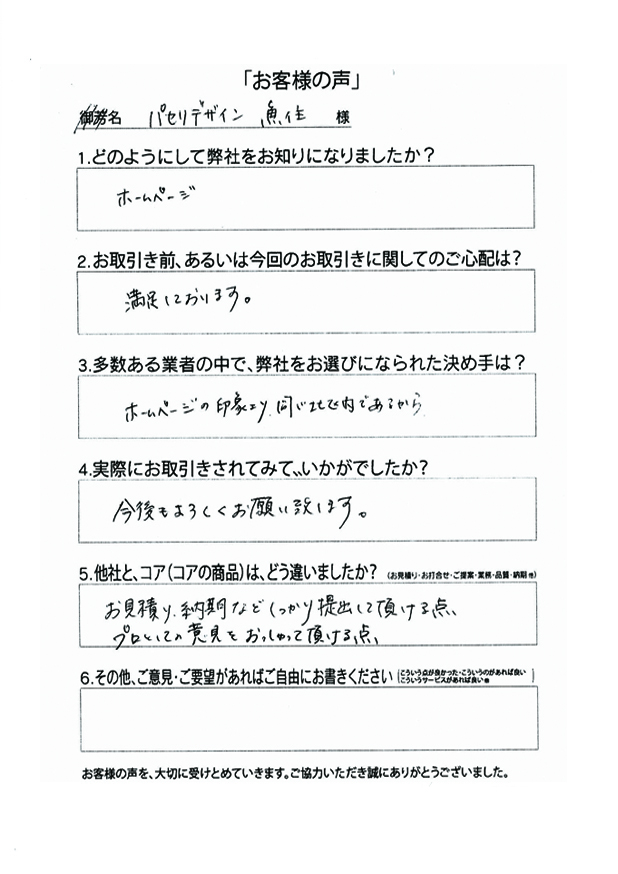 「お客様の声」
御芳名 パセリデザイン 魚住 様
1.どのようにして弊社をお知りになりましたか？
ホームページ
2.お取引き前、あるいは今回のお取引きに関してのご心配は？
満足しております。
3.多数ある業者の中で、弊社をお選びになられた決め手は？
ホームページの印象より 同じ地区内であるから
4.実際にお取引きされてみて、いかがでしたか？
今後もよろしくお願い致します。
5.他社と、コア（コアの商品）は、どう違いましたか？（お見積り・お打合せ・ご提案・業務・品質・納期 他）
お見積り、納期などしっかり提出して頂ける点、
プロとしての意見をおっしゃって頂ける点、
6.その他、ご意見・ご要望があればご自由にお書きください（こういう点が良かった・こういうのがあれば良い
こういうサービスがあれば良い 他）
お客様の声を、大切に受けとめていきます。ご協力いただき誠にありがとうございました。